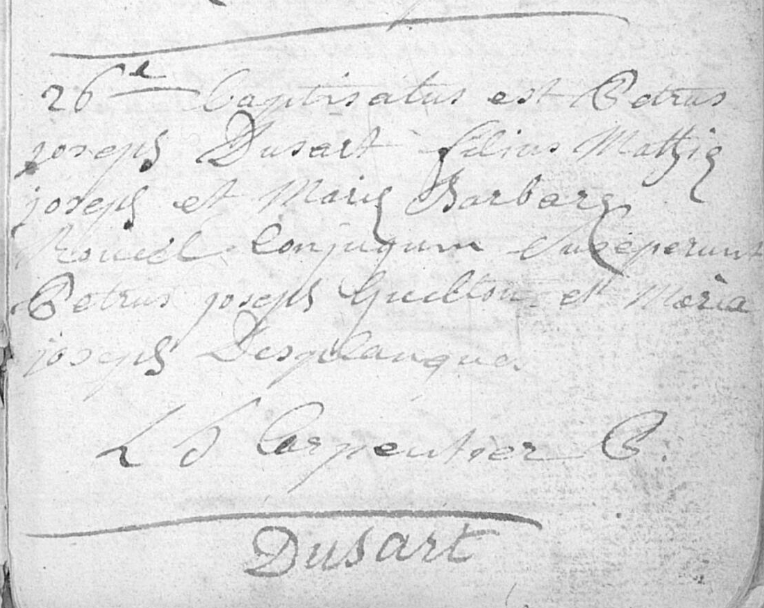 26e Baptisatus est Petrus
joseph Dusart filius Mathiæ
joseph et Mariæ Barbaræ
Roucel Conjugum Susceperunt
Petrus joseph et Maria
joseph Desplanque
L J Carpentier P.
Dusart